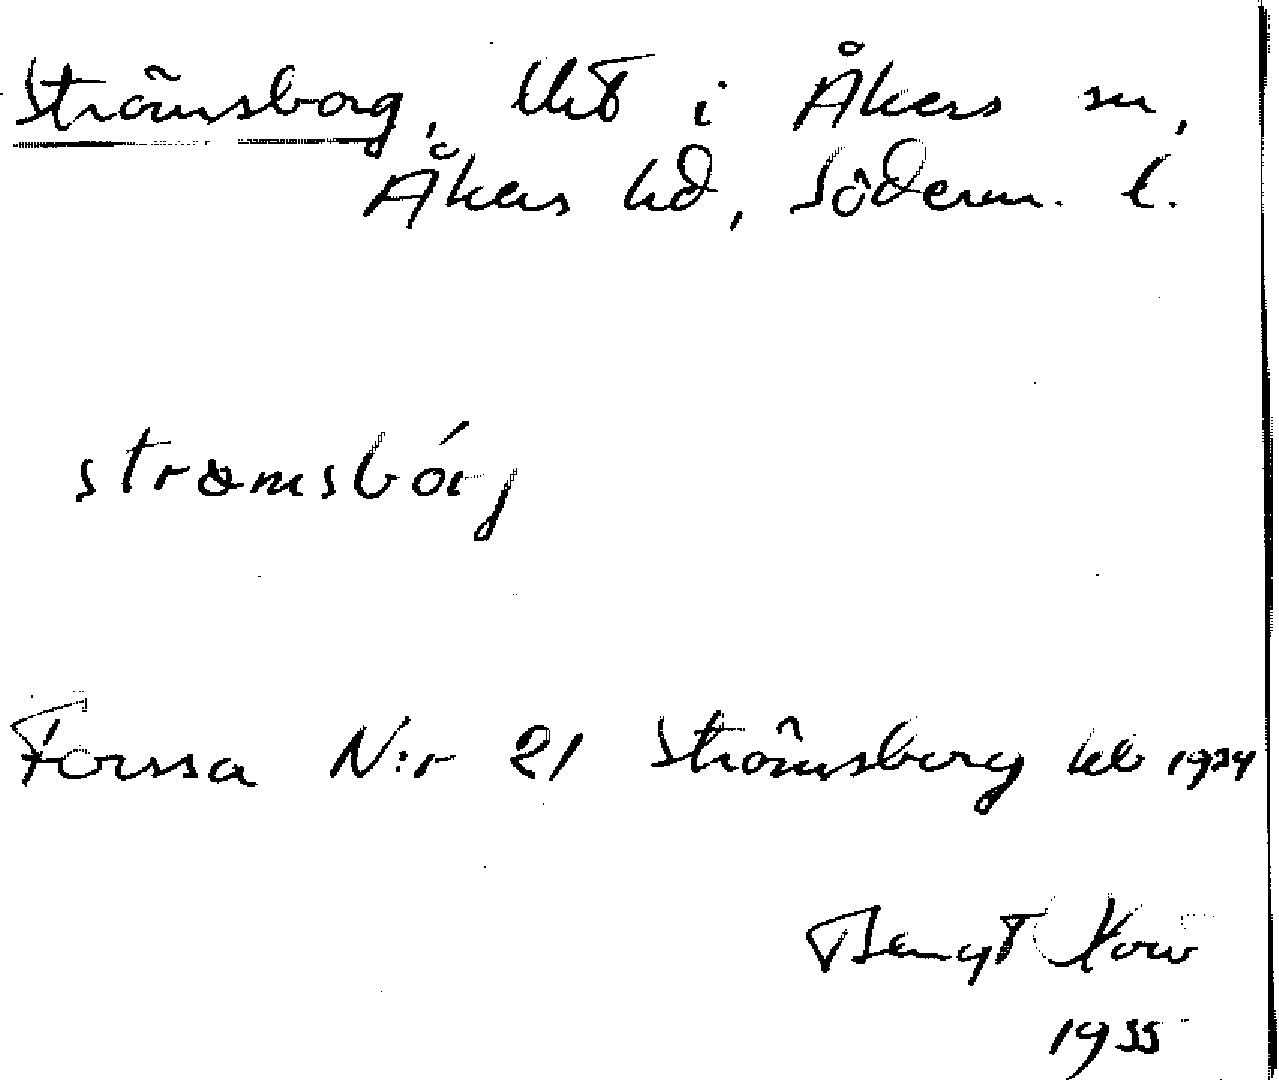 Strömsborg, lht i Åkers sn,
Åkers hd, Söderm. l.
strömsbórj
Forssa N:r 21 Strömsborg lht 1924
Bengt
1955